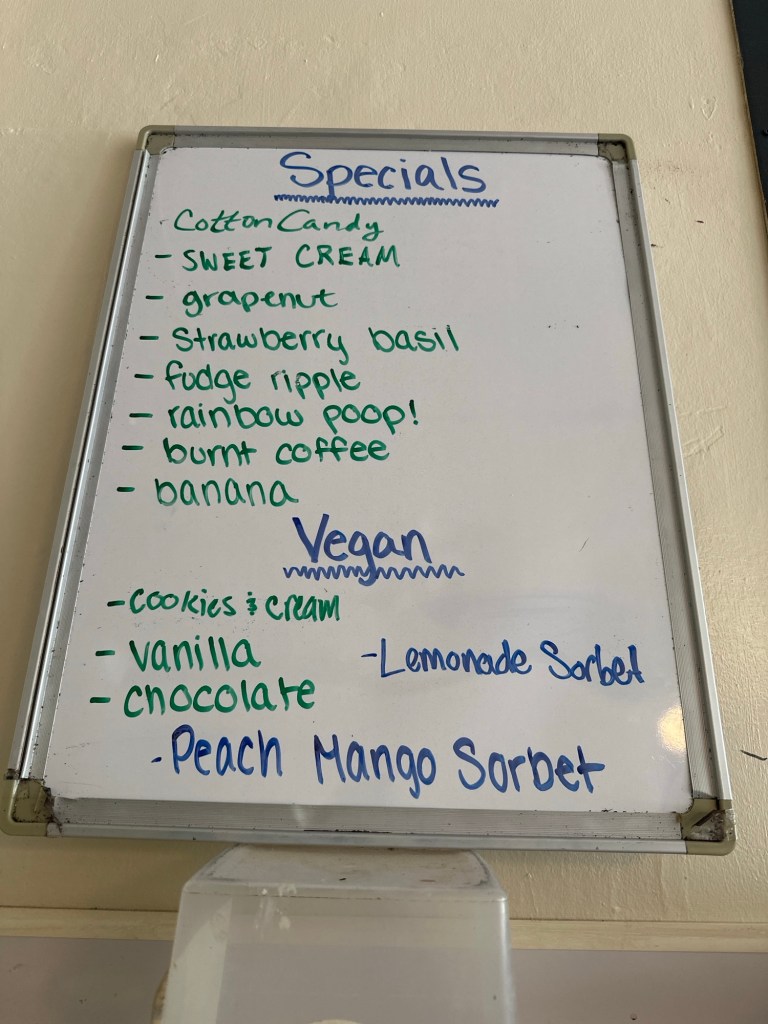 Specials
Cotton Candy
- SWEET CREAM
- grapenut
- Strawberry basil
- fudge ripple
- rainbow poop!
- burnt coffee
- banana
Vegan
- cookies & cream
- vanilla
- Lemonade Sorbet
- chocolate
- Peach Mango Sorbet